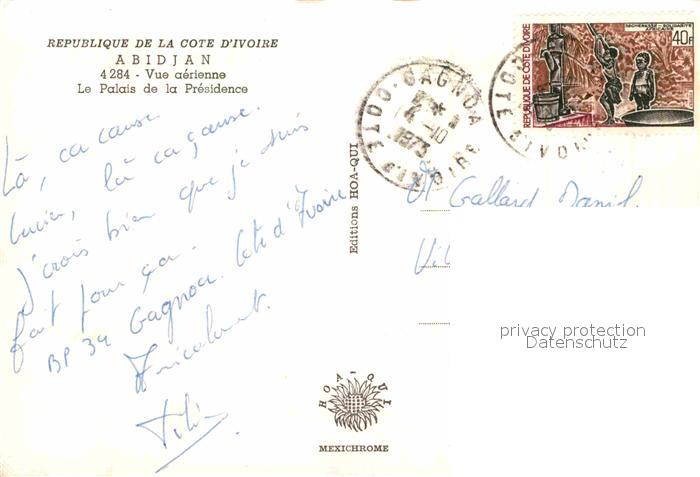 REPUBLIQUE DE LA COTE D'IVOIRE
ABIDJAN
4284 - Vue aérienne
Le Palais de la Présidence
Là, ca cause
là ca cause.
j'crois bien que je suis
fait pour ça.
BP 34 Gagnoa. Cote d'Ivoire
Editions HOA-QUI
HOA-QUI
MEXICHROME
GAGNOA
COTE D'IVOIRE
-10
1973
REPUBLIQUE DE COTE D'IVOIRE
SECHERESSE - SOLIDARITE AFRICAINE
40F
Gallard Daniel
privacy protection
Datenschutz